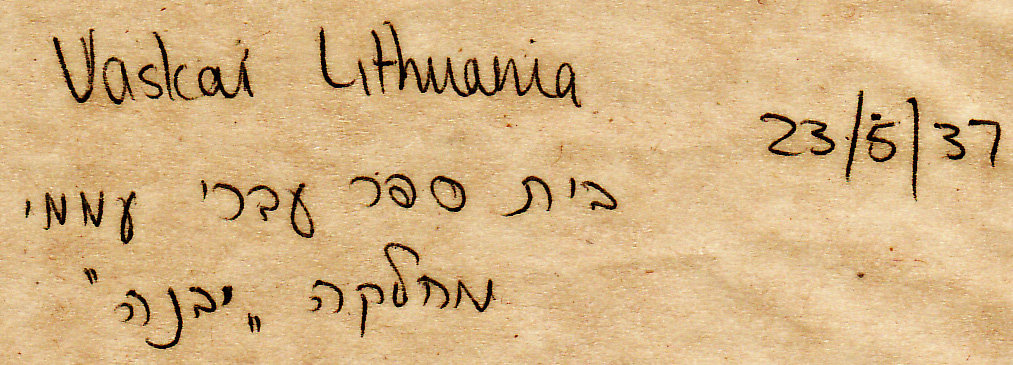 Vaskai Lithuania
23/5/37
בית ספר עברי עממי
מחלקה „יבנה"